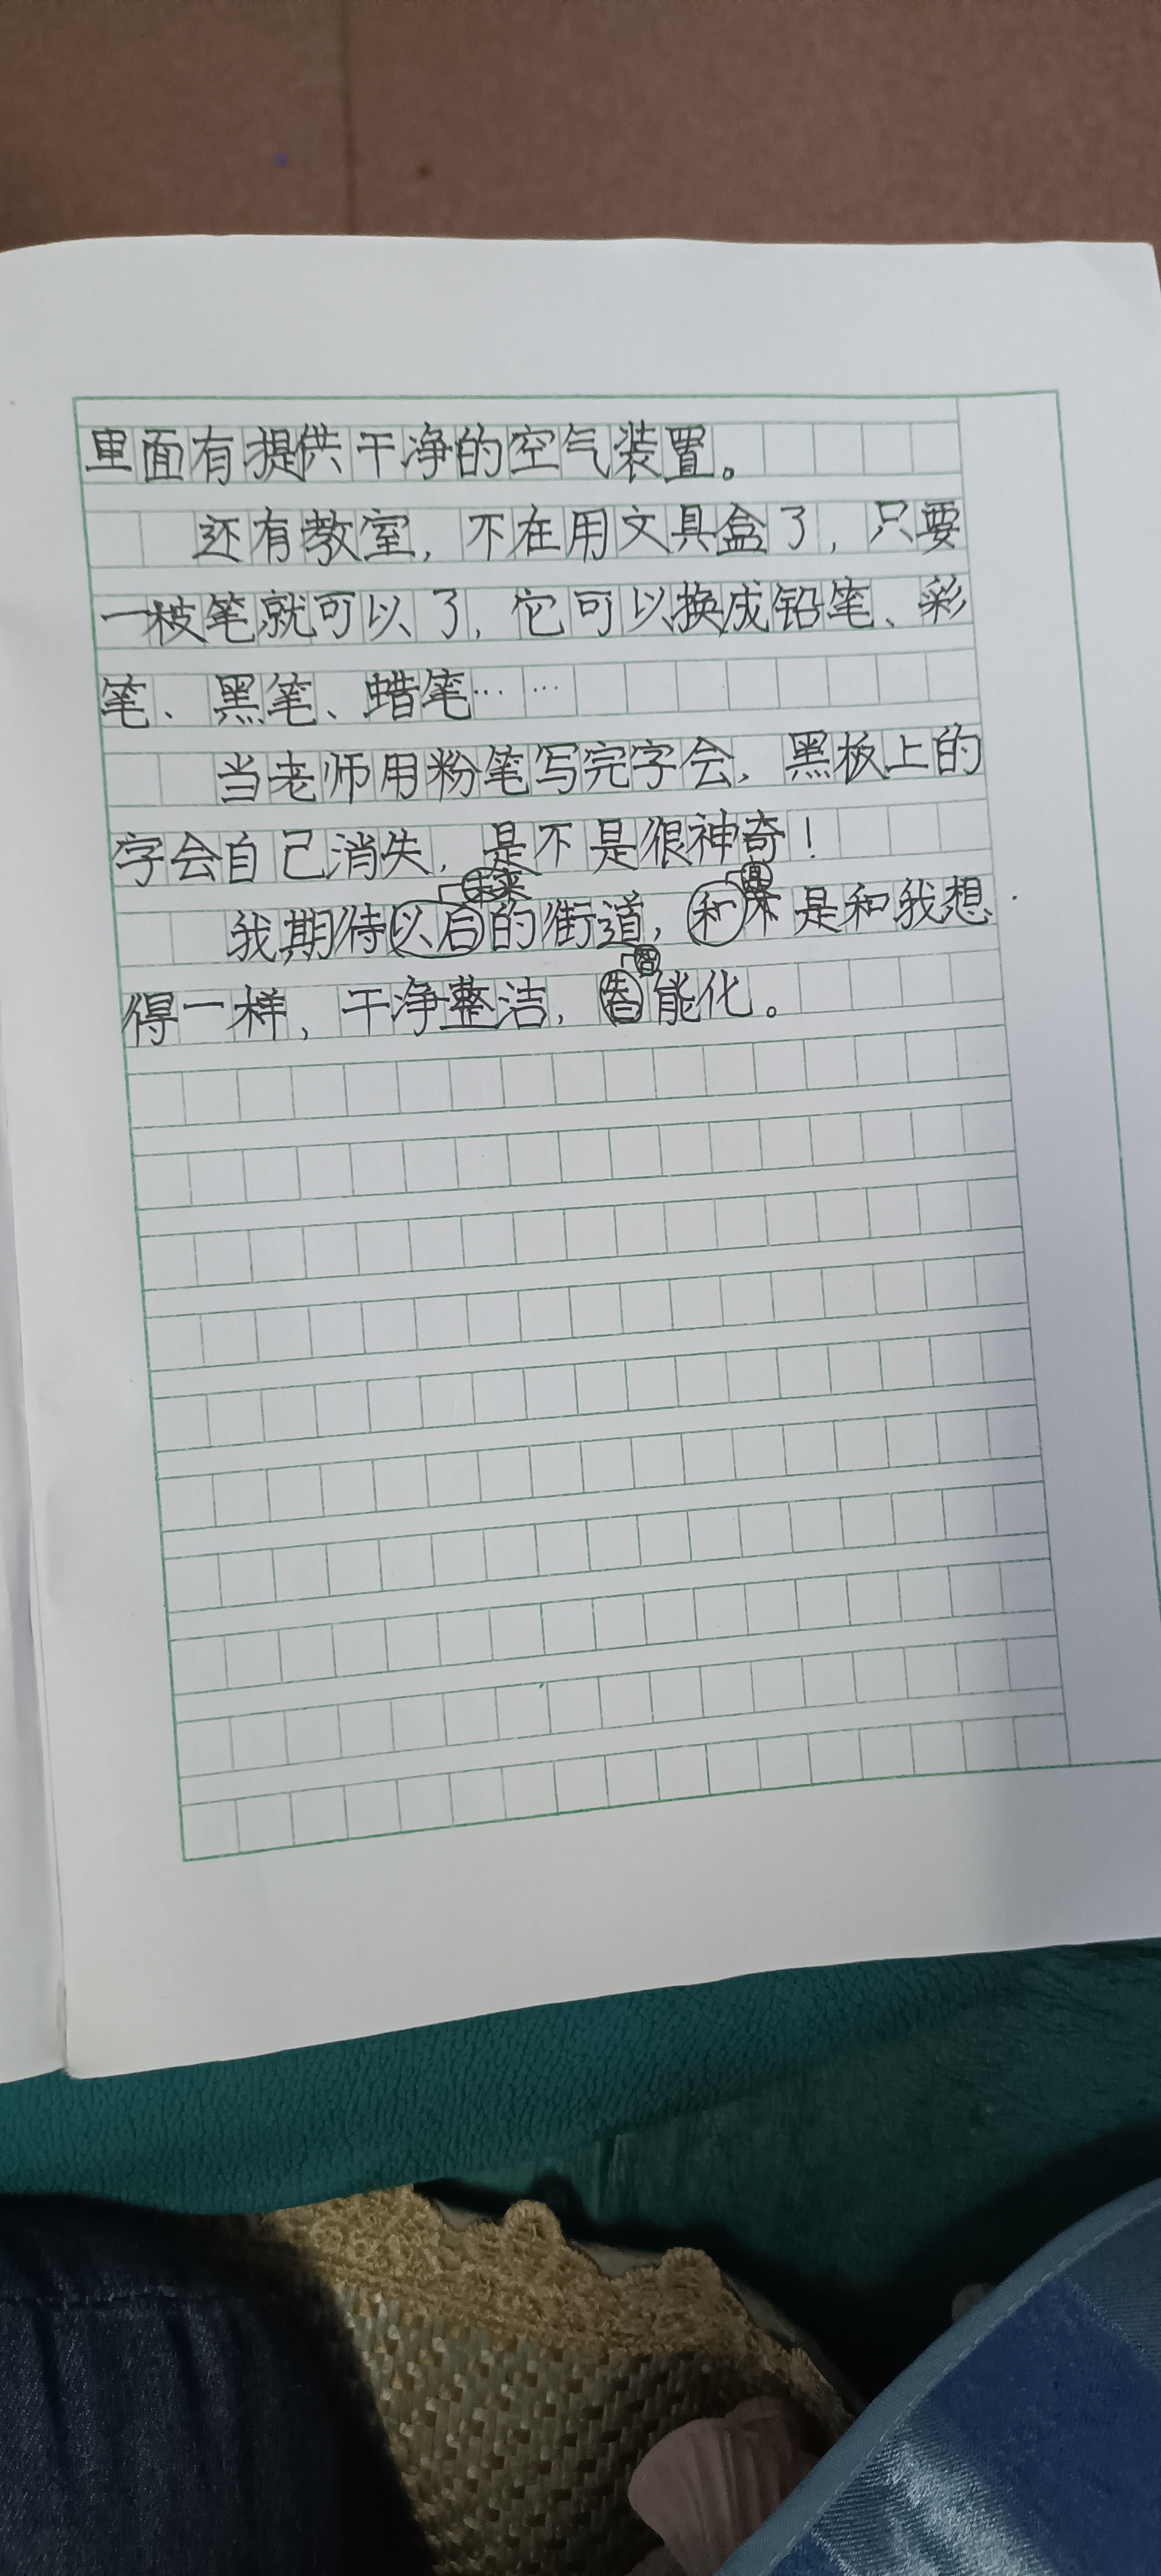 里面有提供干净的空气装置。
还有教室，不在用文具盒了，只要
一枝笔就可以了，它可以换成铅笔、彩
笔、黑笔、蜡笔……
当老师用粉笔写完字会，黑板上的
字会自己消失，是不是很神奇！
未来
我期待以后的街道，和不是和我想
智
得一样，干净整洁，智能化。